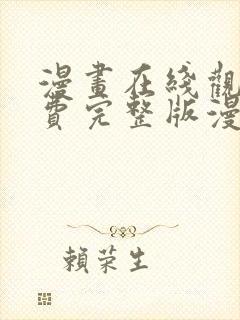 漫畫在綫觀
費完整版漫
賴荣生